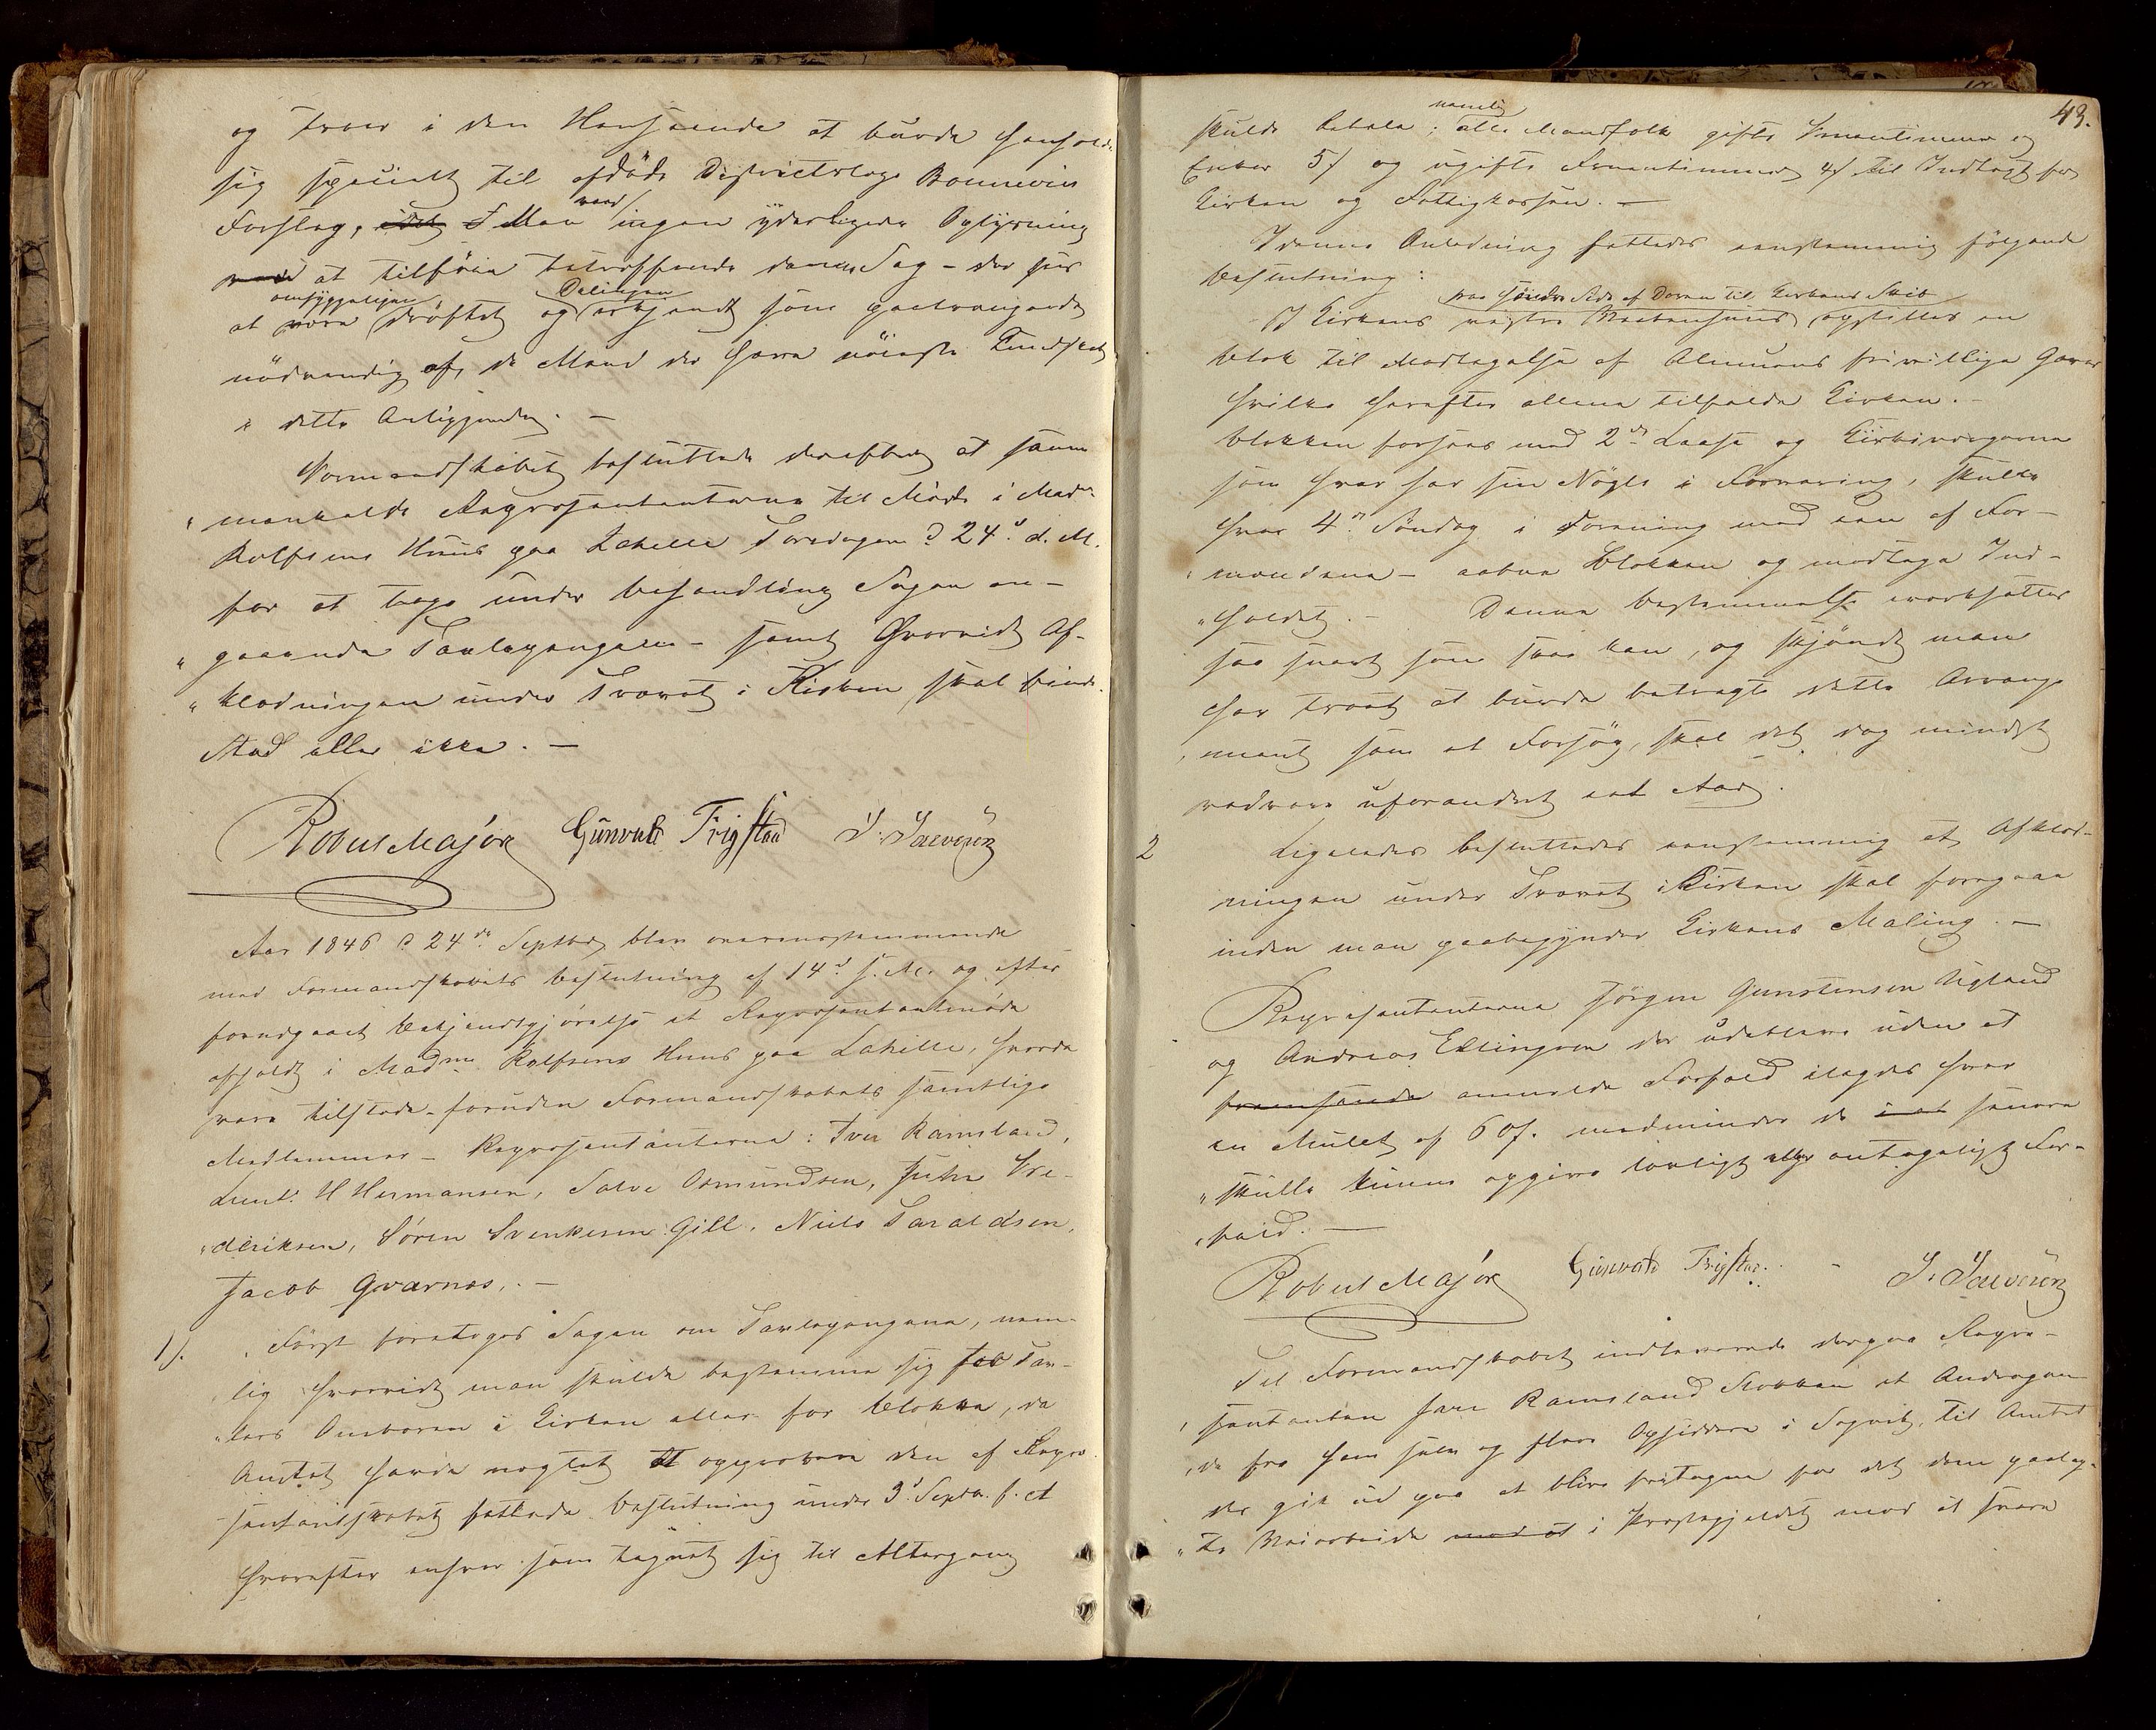 og troer i den Henseende at burde henholde
sig specielt til afdöde Districtslæge Bonnevies
Forslag, idet I Man veed ingen yderligere Oplysning
at tilföie betræffende denne Sag – der sees
omhyggeligen Delingen
at være dröftet og erkjendt som paatrængende
nödvendig af, de Mænd der have nöieste Kundskab
i dette Anliggende. –
Formandskabet besluttede derefter at sam-
"menkalde Repræsentanterne til Möde i Madme
Rolfsens Huus paa Lahelle Torsdagen d 24de d. M.
for at tage under Behandling Sagen an-
"gaaende Tavlegangen – samt Hvorvidt Af-
"klædningen under Taarnet i Kirken skal finde
Sted eller ikke. –
Robert Major Gunvald Trigstad I. Salvesen
Aar 1846 d 24de Septbr blev overensstemmende
med Formandskabets Beslutning af 14de s. M. og efter
forudgaaet Bekjendtgjörelse et Repræsentantmöde
afholdt i Madme Rolfsens Huus paa Lahelle, hvorda
vare tilstede – foruden Formandskabets samtlige
Medlemmer – Repræsentanterne: Iver Ramsland,
Lieut: H Hermansen, Salve Osmundsen, Juhr Fre-
"deriksen, Sören Svenkesen Gill. Niels Taraldsen,
Jacob Qvarnes. –
1). Först foretoges Sagen om Tavlegangene, nem-
lig hvorvidt man skulde bestemme sig for Tav-
"lers Ombæren i Kirken eller for Blokke, da
Amtet havde negtet at approbere den af Repræ-
sentantskabet fattede Beslutning under 3de Septbr. f. A
hvorefter enhver som tegnet sig til Altergang
43.
skulde betale; nemlig alle Mandfolk gifte Fruentimmer og
Enker 5ß og ugifte Fruentimmer 4ß til Indtægt for
Kirken og Fattigkassen. –
I denne Anledning fattedes eenstemmig fölgende
Beslutning:
paa Söndre Side af Doren til Kirkens Skib
I Kirkens vestre Vaabenhuus opstilles en
Blok til Modtagelse af Almuens frivillige Gaver
hvilke herefter allene tilfalde Kirken. –
Blokken forsees med 2de Laase og Kirkeværgerne
som hver har sin Nögle i Forvaring, skulle
hver 4de Söndag i Forening med een af For-
"mændene – aabne Blokken og modtage Ind-
"holdet. – Denne Bestemmelse iværksættes
saa snart som skee kan, og skjöndt man
har troet at burde betragte dette Arrange
"ment som et Forsög, skal det dog mindst
vedvare uforandret eet Aar.
2 Ligeledes besluttedes eenstemmig at Afklæd-
ningen under Taarnet i Kirken skal foregaae
inden man paabegynder Kirkens Maling. –
Repræsentanterne Jörgen Gunstensen Ugland
og Andreas Ellingsen der udebleve uden at
anmelde Forfald ilagdes hver
en Mulct af 60ß. medmindre de i at senere
"skulle kunne opgive lovligt eller antageligt For-
"fald. –
Robert Major Gunvald Trigstad. – I. Salvesen
Til Formandskabet indleverede derpaa Repræ-
"sentanten Iver Ramsland Stokken et Andragen-
"de fra ham selv og flere Opsiddere i Sognet, til Amtet
der gik ud paa at blive fritagen for det dem paalag-
"te Veiarbeide med at i Præstegjeldet mod at svare